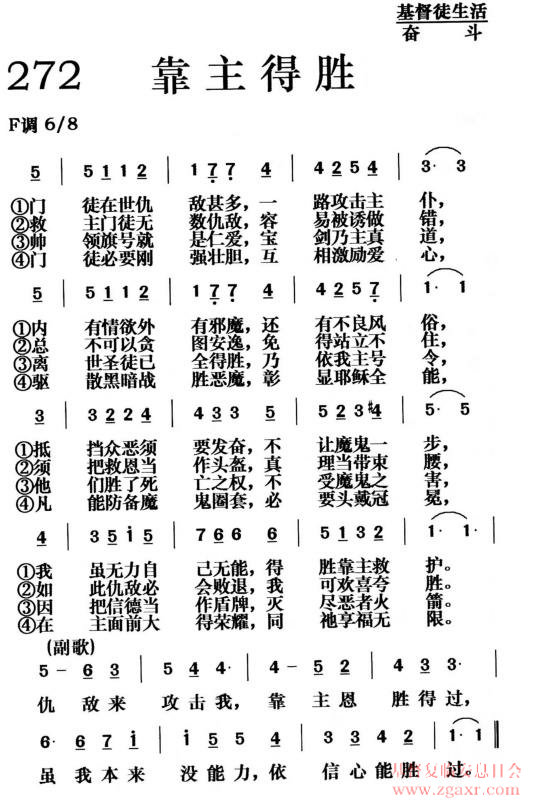 基督徒生活
奋斗
272 靠主得胜
F调 6/8
5 | 5 1 1 2 1 7 7 4 | 4 2 5 4 3· 3
①门 徒在世仇 敌甚多，一 路攻击主 仆，
②救 主门徒无 数仇敌，容 易被诱做 错，
③帅 领旗号就 是仁爱，宝 剑乃主真 道，
④门 徒必要刚 强壮胆，互 相激励爱 心，
5 | 5 1 1 2 1 7 7 4 | 4 2 5 7 1· 1
①内 有情欲外 有邪魔，还 有不良风 俗，
②总 不可以贪 图安逸，免 得站立不 住，
③离 世圣徒已 全得胜，乃 依我主号 令，
④驱 散黑暗战 胜恶魔，彰 显耶稣全 能，
3 | 3 2 2 4 | 4 3 3 5 | 5 2 3 #4 | 5· 5
①抵 挡众恶须 要发奋，不 让魔鬼一 步，
②须 把救恩当 作头盔，真 理当带束 腰，
③他 们胜了死 亡之权，不 受魔鬼之 害，
④凡 能防备魔 鬼圈套，必 要头戴冠 冕，
4 | 3 5 i 5 | 7 6 6 6 | 5 1 3 2 | 1· 1·
①我 虽无力自 己无能，得 胜靠主救 护。
②如 此仇敌必 会败退，我 可欢喜夸 胜。
③因 把信德当 作盾牌，灭 尽恶者火 箭。
④在 主面前大 得荣耀，同 祂享福无 限。
(副歌)
5 – 6 3 | 5 4 4· | 4 – 5 2 | 4 3 3·
仇敌来 攻击我，靠主恩 胜得过，
6· 6 7 i | i 5 5 4 | 3 4 4 2 | 1· 1 ‖
虽我本来 没能力，依 信心能胜 过。
基督复临安息日会
www.zgaxr.com